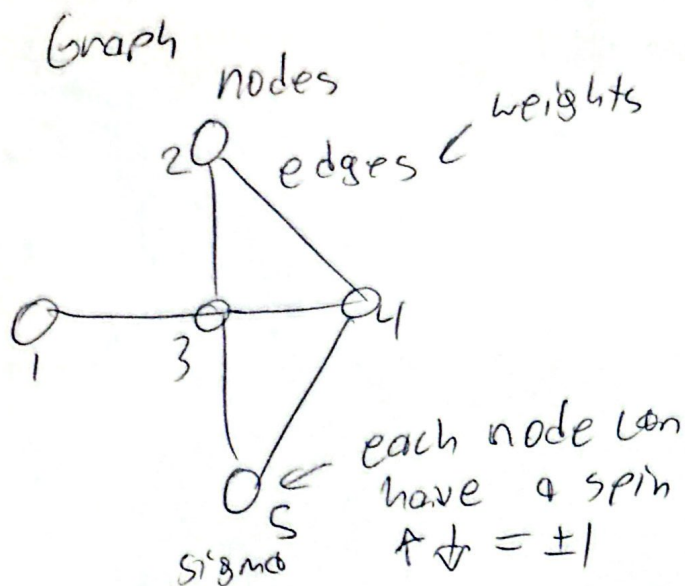 Graph
nodes
weights
2
edges
1
3
4
each node can
have a spin
5
↑ ↓ = ±1
sigma